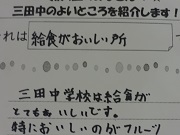 三田中のよいところを紹介します!
れは給食がおいしい所
三田中学校は給食が
とてもおいしいです。
特においしいのがフルーツ